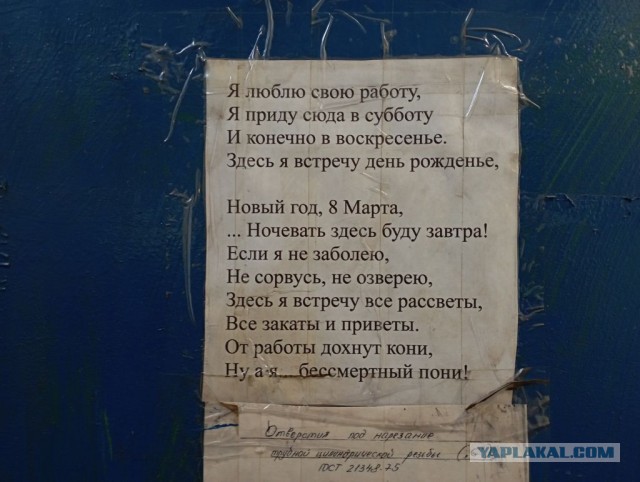 Я люблю свою работу,
Я приду сюда в субботу
И конечно в воскресенье.
Здесь я встречу день рожденье,
Новый год, 8 Марта,
... Ночевать здесь буду завтра!
Если я не заболею,
Не сорвусь, не озверею,
Здесь я встречу все рассветы,
Все закаты и приветы.
От работы дохнут кони,
Ну а я... бессмертный пони!
Отверстия под нарезание
трубной цилиндрической резьбы
ГОСТ 21348-75
YAPLAKAL.COM